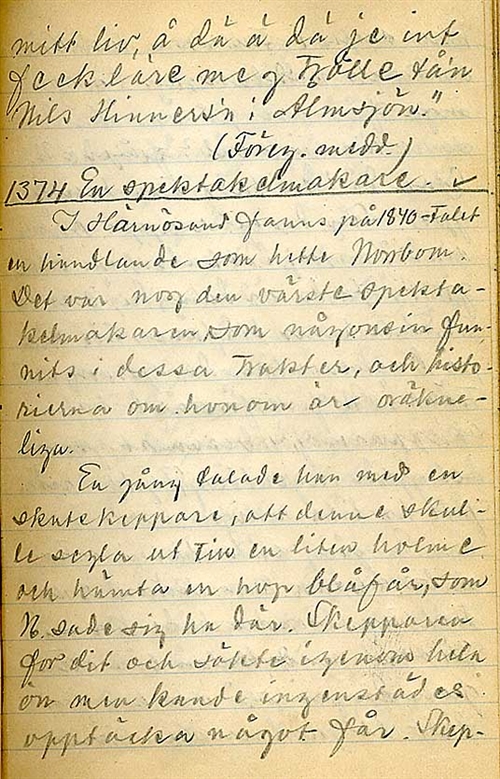 mitt liv, å dä ä dä je int
feck läre mej Trölle tån
Nils Hinners'n i Almsjön."
(Föreg. medd.)
1374 En spektakelmakare. ✓
I Härnösand fanns på 1840-talet
en handlande som hette Norrbom.
Det var nog den värste spekta-
kelmakaren, som någonsin fun-
nits i dessa trakter, och histo-
rierna om honom är oräkne-
liga.
En gång talade han med en
skutskeppare, att denne skul-
le segla ut till en liten holme
och hämta en hop blåfår, som
N. sade sig ha där. Skepparen
for dit och sökte igenom hela
ön men kunde ingenstädes
upptäcka något får. Skep-